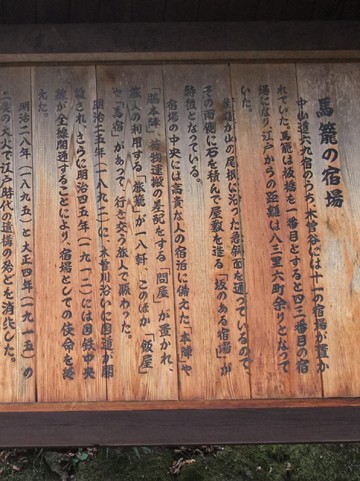 馬籠の宿場
中山道六九宿のうち、木曽谷には十一の宿場が置か
れていた。馬籠は板橋を一番目とすると四三番目の宿
場になり、江戸からの距離は八三里六町余りとなって
いた。
街道が山の尾根に沿った急斜面を通っているので、
その両側に石を積んで屋敷を造る「坂のある宿場」が
特徴となっている。
宿場の中央には高貴な人の宿泊に備えた「本陣」や
「脇本陣」、荷物運搬の差配をする「問屋」が置かれ、
旅人の利用する「旅籠」が一八軒、このほか「飯屋」
や「馬宿」があって、行き交う旅人で賑わった。
明治二五年(一八九二)に、木曽川沿いに国道が開
設され、さらに明治四五年(一九一二)には国鉄中央
線が全線開通することにより、宿場としての使命を終
えた。
明治二八年(一八九五)と大正四年(一九一五)の
二度の大火で江戸時代の遺構の殆どを消失した。